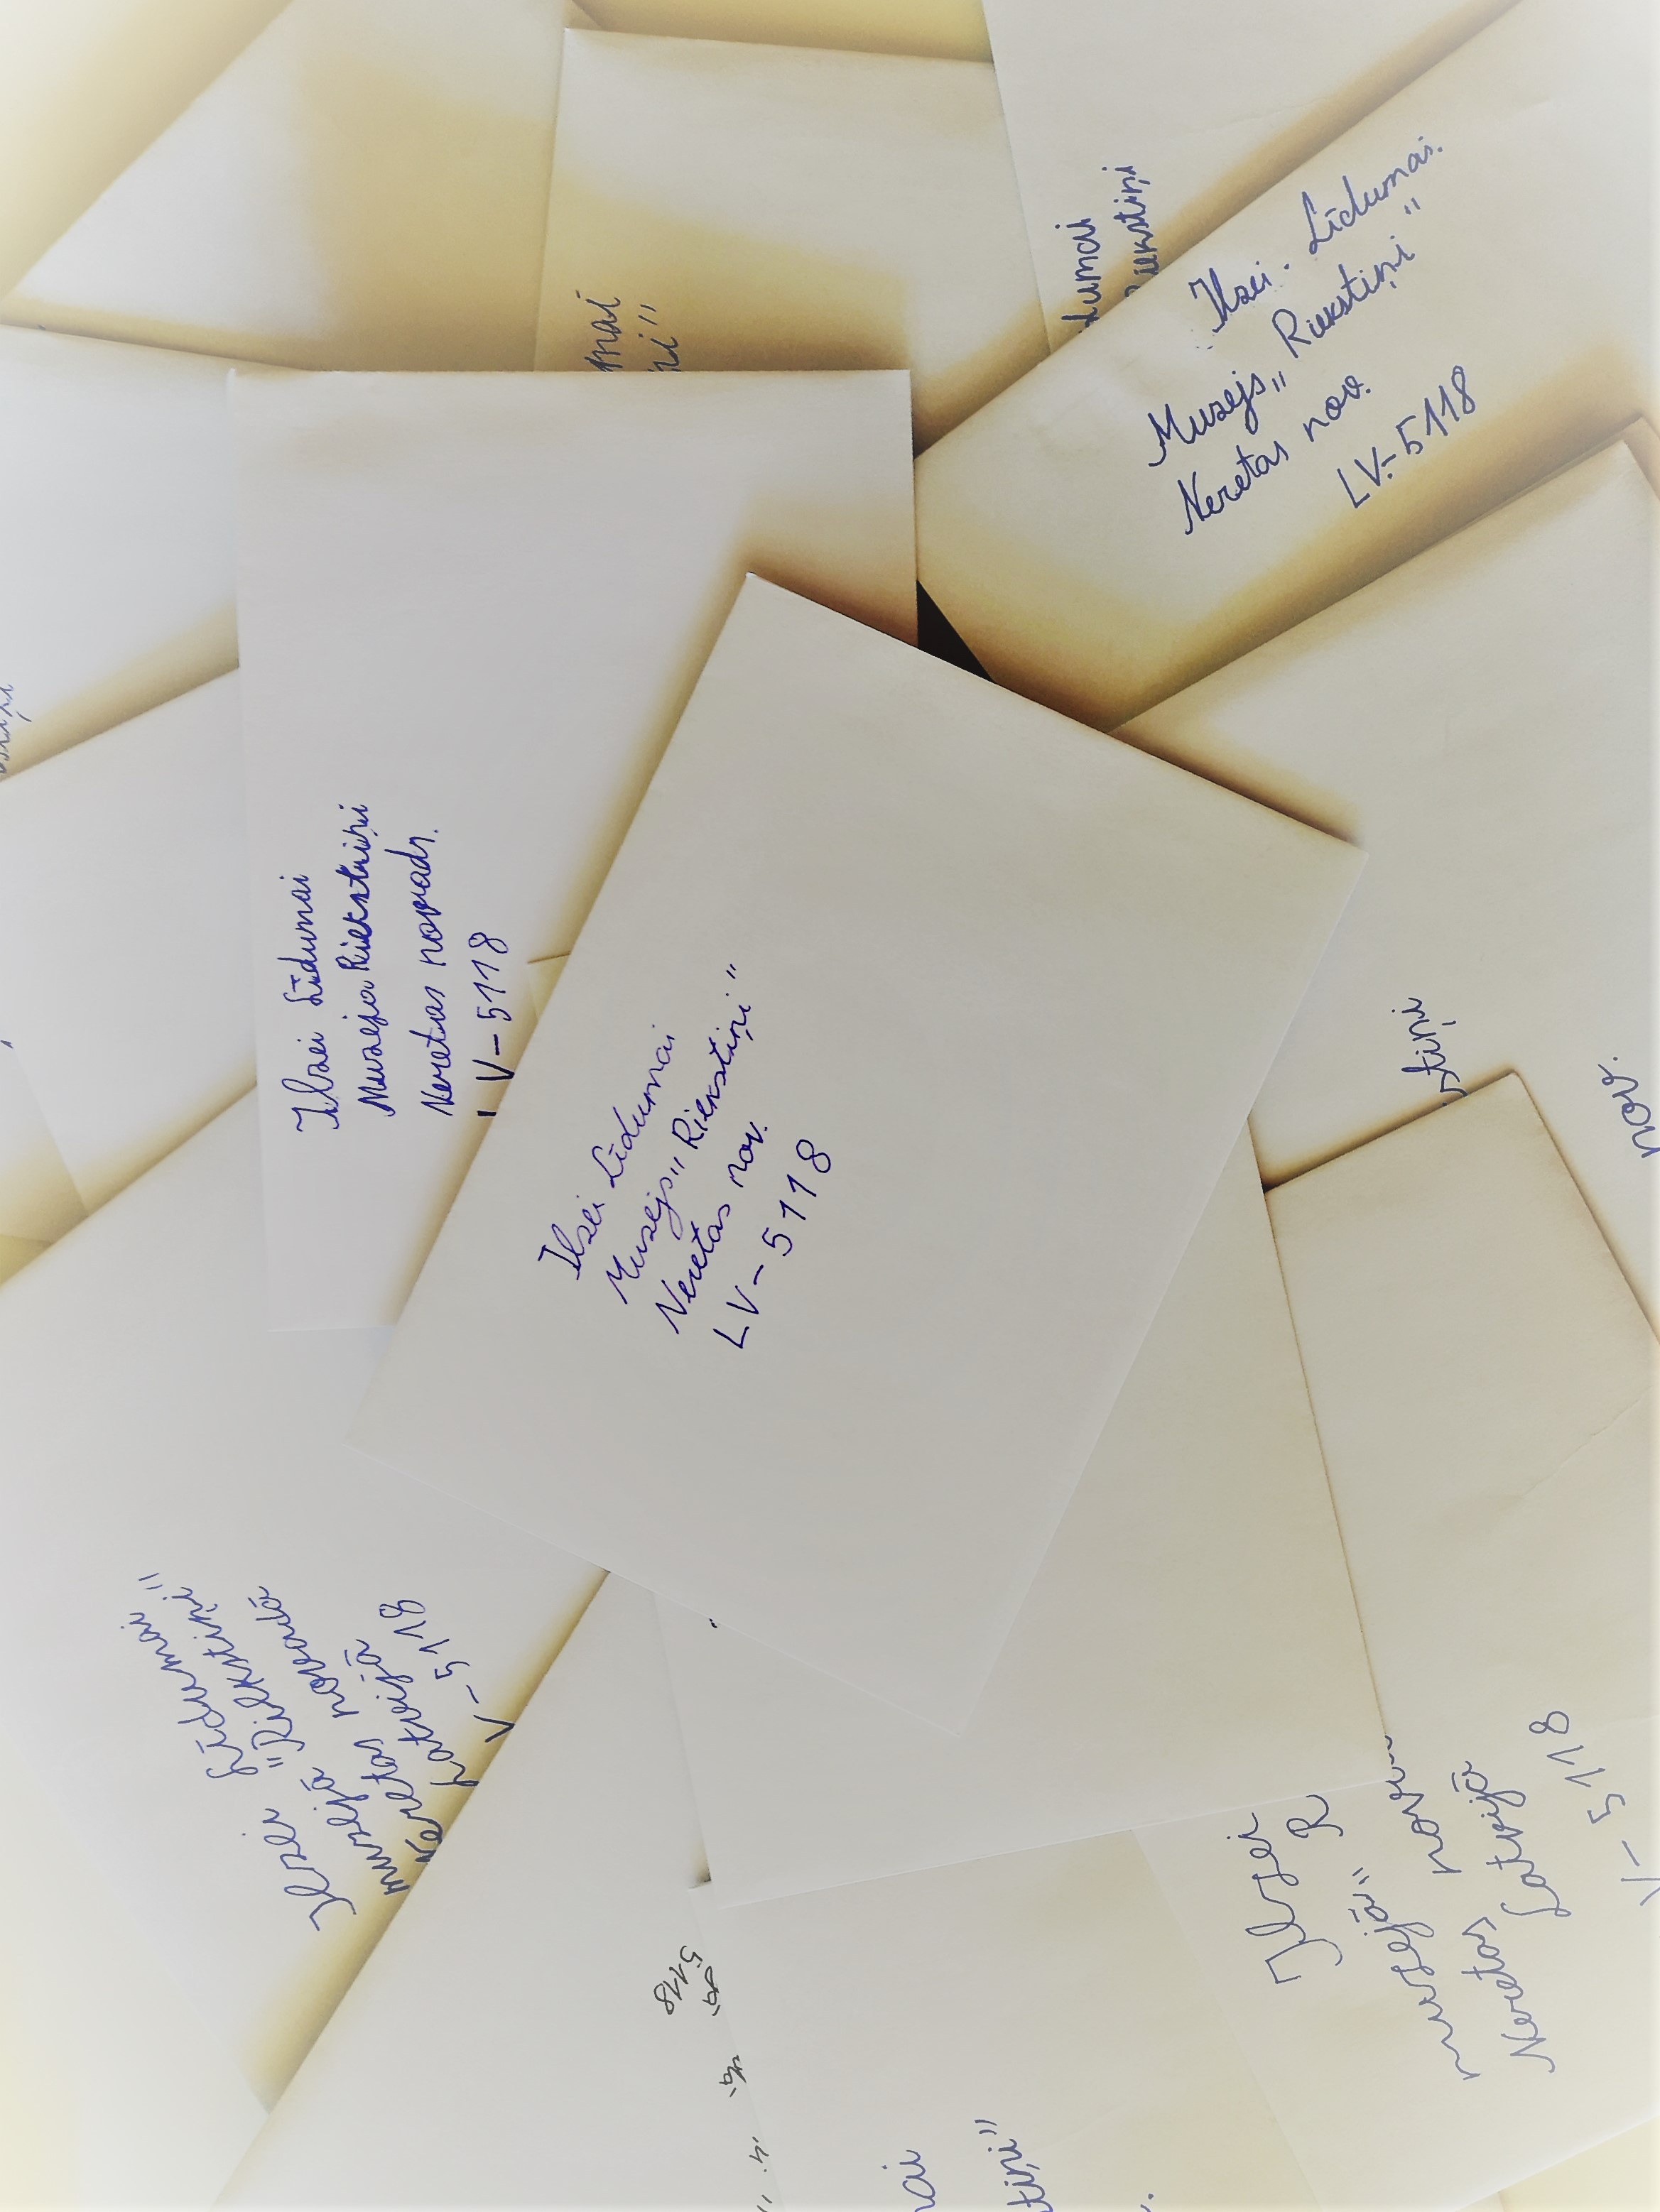 Ilzei Līdumai
Muzejs,, Riekstiņi"
Neretas nov.
LV-5118
Ilzei Līdumai
Muzeja Riekstiņi
Neretas novads.
LV-5118
Ilzei. Līdumai.
Muzejs,, Riekstiņi"
Neretas nov.
LV-5118
dumai
iekstiņi
mai
ņi"
stiņi
nov.
Ilzei Līdumai
muzejā "Riekstiņi"
Neretas novadā
Latvijā
V-5118
Ilzei
muzejā" R
Neretas nov
Latvijā
V-5118
5118
mai
tiņi"